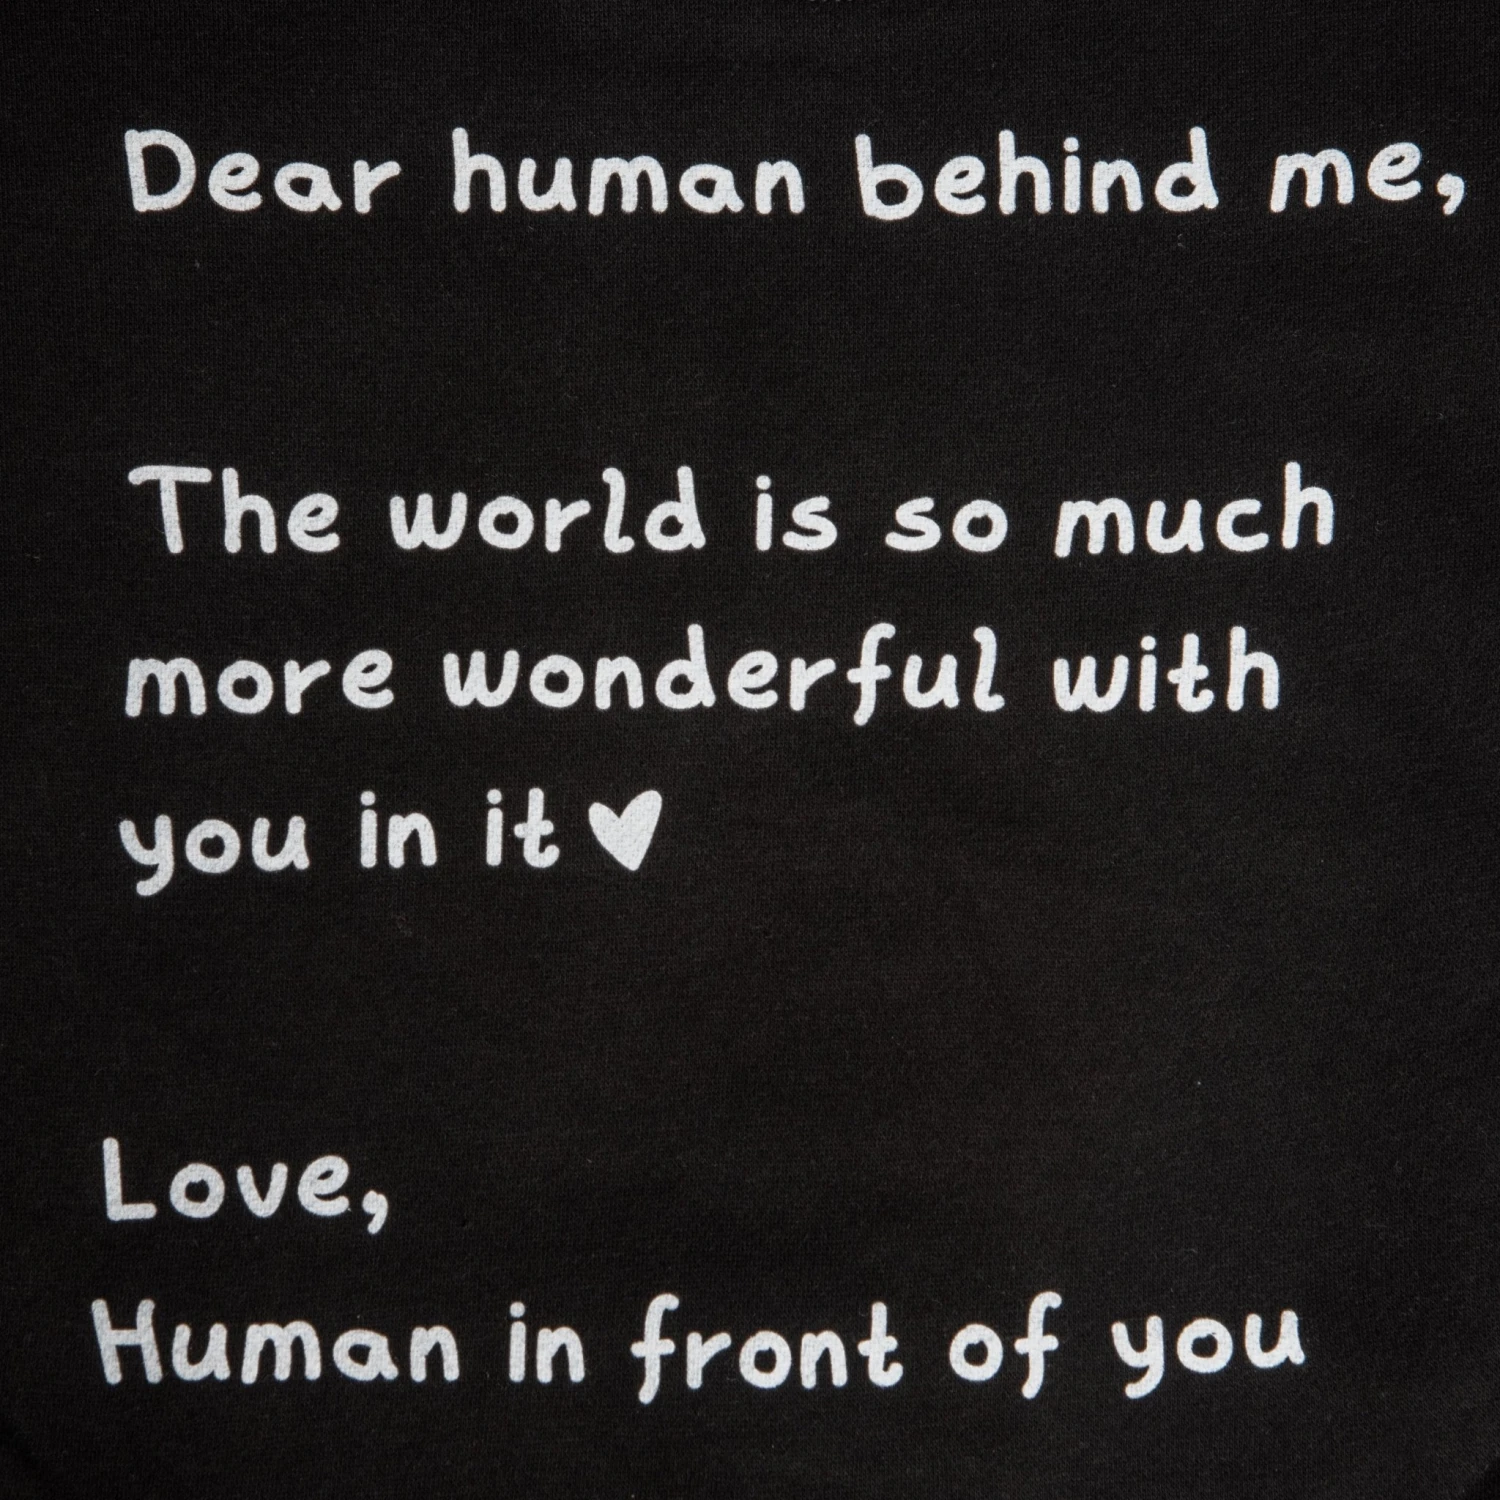 Dear human behind me,
The world is so much
more wonderful with
you in it♥
Love,
Human in front of you